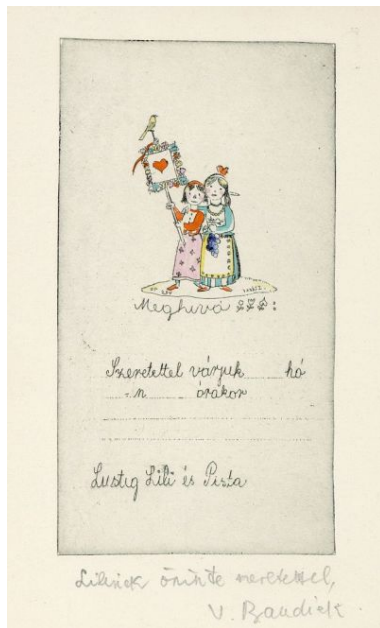 Meghivó
Szeretettel várjuk hó
n órakor
Lustig Lili és Pista
Lilinek őszinte szeretettel,
V.